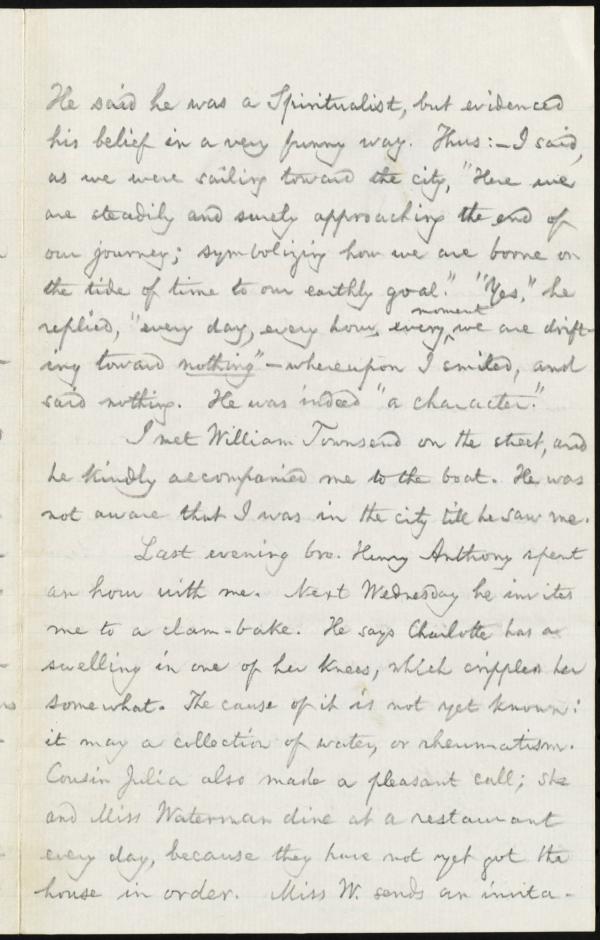 He said he was a Spiritualist, but evidenced
his belief in a very funny way. Thus:—I said,
as we were sailing toward the city, "Here we
are steadily and surely approaching the end of
our journey; symbolizing how we are borne on
the tide of time to our earthly goal." "Yes," he
moment
replied, "every day, every hour, every, we are drift-
ing toward nothing"—whereupon I smiled, and
said nothing. He was indeed "a character."
I met William Townsend on the street, and
he kindly accompanied me to the boat. He was
not aware that I was in the city till he saw me.
Last evening bro. Henry Anthony spent
an hour with me. Next Wednesday he invites
me to a clam-bake. He says Charlotte has a
swelling in one of her knees, which cripples her
somewhat. The cause of it is not yet known:
it may a collection of water, or rheumatism.
Cousin Julia also made a pleasant call; she
and Miss Waterman dine at a restaurant
every day, because they have not yet got the
house in order. Miss W. sends an invita-